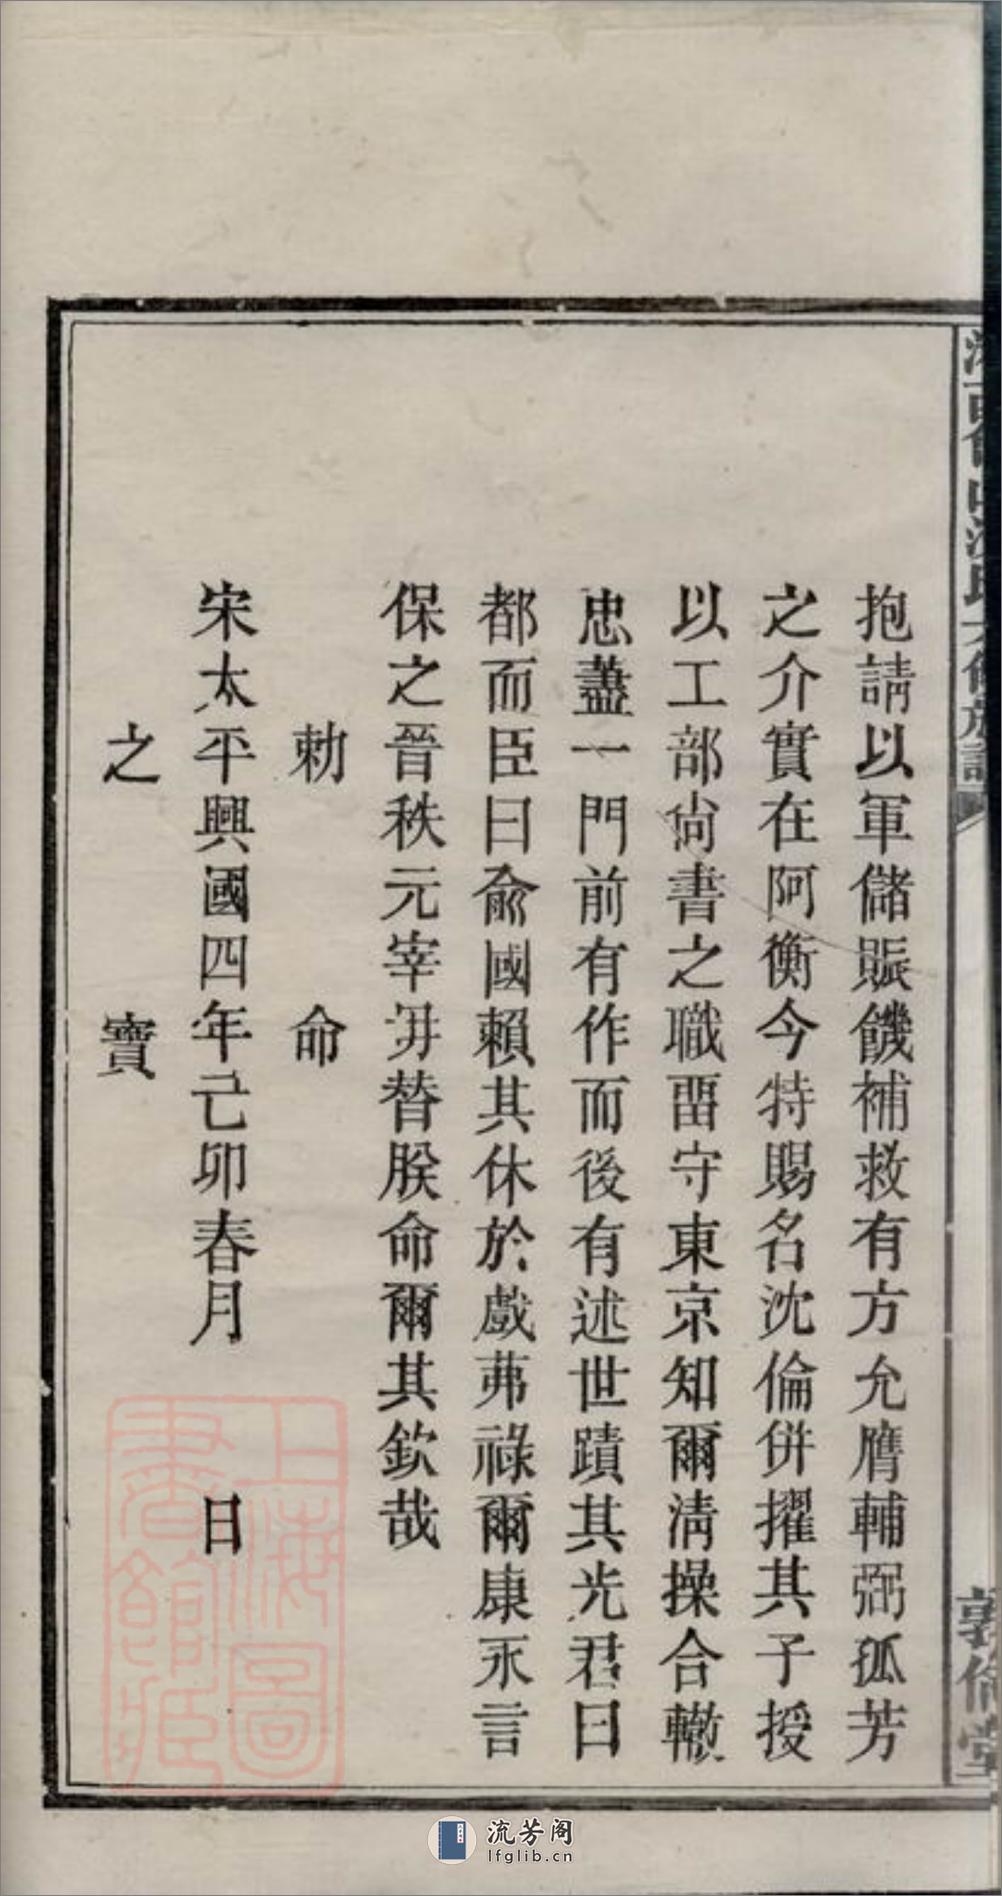 抱請以軍儲賑饑補救有方允膺輔弼孤芳
之介實在阿衡今特賜名沈倫併擢其子授
以工部尙書之職畱守東京知爾清操合轍
忠藎一門前有作而後有述世蹟其光君曰
都而臣曰兪國賴其休於戲茀祿爾康永言
保之晉秩元宰毋替朕命爾其欽哉
勅命
宋太平興國四年己卯春月日
之寶
敦倫堂
上海圖書館藏
流芳阁
lfglib.cn